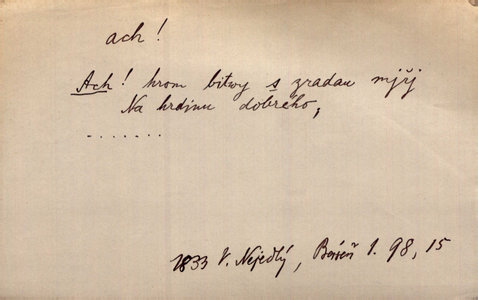 ach!
Ach! hrom bitwy s zradau mjřj
Na hrdinu dobrého,
.......
1833 V. Nejedlý, Básně 1. 98, 15